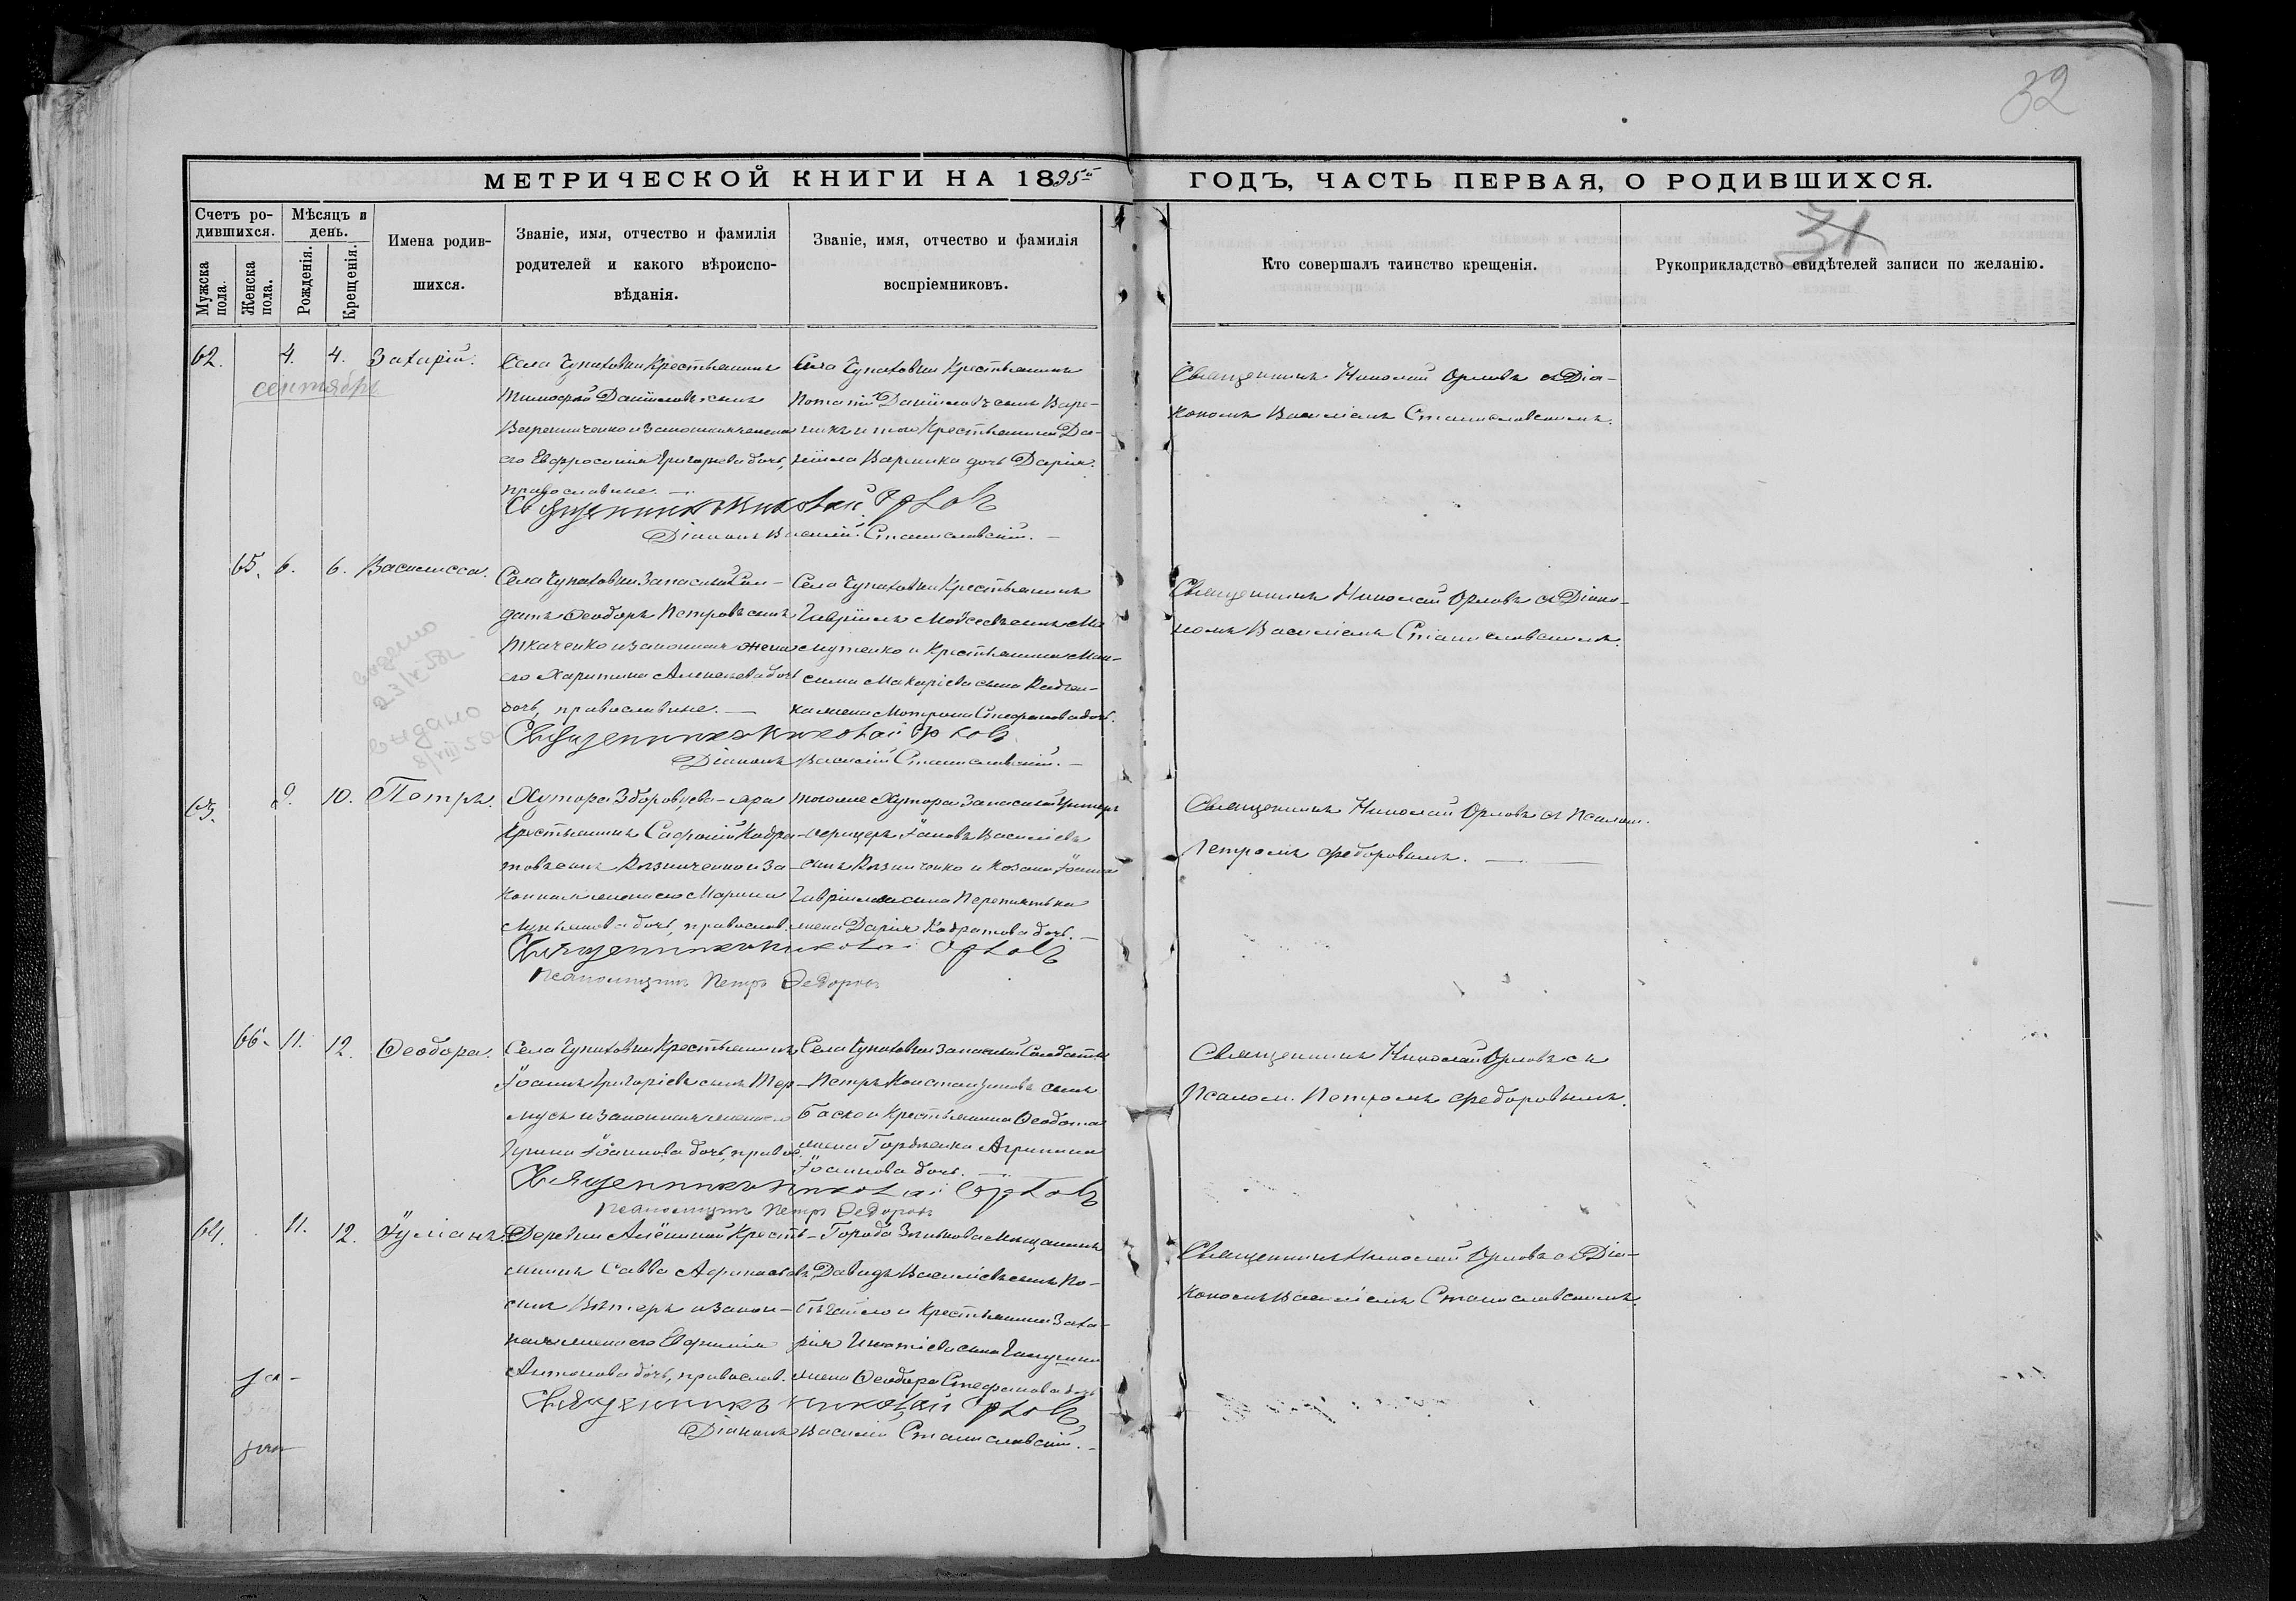 32
МЕТРИЧЕСКОЙ КНИГИ НА 1895й ГОДЪ, ЧАСТЬ ПЕРВАЯ, О РОДИВШИХСЯ.
31
Счетъ родившихся.
Мужска пола.
Женска пола.
Мѣсяцъ и день.
Рожденія.
Крещенія.
Имена родившихся.
Званіе, имя, отчество и фамилія
родителей и какого вѣроиспо-
вѣданія.
Званіе, имя, отчество и фамилія
воспріемниковъ.
Кто совершалъ таинство крещенія.
Рукоприкладство свидѣтелей записи по желанію.
62. 4. 4. Захарій.
сентябрь
Села Чупаховки Крестьянинъ
Тимофей Даніиловъ сынъ
Варениченко и законная жена
его Евфросинія Григорьева дочь,
православные.
Села Чупаховки Крестьянинъ
Потапій Даніиловъ сынъ Варе-
никъ и того Крестьянина Да-
ніила Вареника дочь Дарія.
Священникъ Николай Орловъ съ Діа-
кономъ Василіемъ Станиславскимъ.
Священникъ Николай Орловъ
Діаконъ Василій Станиславскій.
65. 6. 6. Василисса.
видано
23/V 58г
видано
8/VIII 55г
Села Чупаховки Запасный Сол-
датъ Ѳеодоръ Петровъ сынъ
Ткаченко и законная жена
его Харитина Алексѣева
дочь, православные.
Села Чупаховки Крестьянинъ
Гавріилъ Мойсеевъ сынъ
и Крестьянина Мак-
сима Макаріева сына
жена Матрона Стефанова дочь.
Священникъ Николай Орловъ съ Діако-
номъ Василіемъ Станиславскимъ.
Священникъ Николай Орловъ
Діаконъ Василій Станиславскій.
63. 9. 10. Петръ.
Хутора Зборовцева-яра
Крестьянинъ Сафроній Кодра-
товъ сынъ Рязниченко и за-
конная жена его Марина
Лукьянова дочь, православ.
тогоже Хутора Запасный Унтеръ
офицеръ Іаковъ Василіевъ
сынъ Рязниченко и Козака Іоанна
Гавріилова сына Перепятька
жена Дарія Кодратова дочь.
Священникъ Николай Орловъ съ Псалом.
Петромъ Федоровымъ.
Священникъ Николай Орловъ
Псаломщикъ Петръ Федоровъ
66. 11. 12. Ѳеодора.
Села Чупаховки Крестьянинъ
Іоаннъ Григоріевъ сынъ Тер-
мусъ и законная жена его
Ирина Іоаннова дочь, правос.
Села Чупаховки Запасный Солдатъ
Петръ Константиновъ сынъ
Баско и Крестьянина Ѳеодота
жена Гордіенка Агрипина
Іоаннова дочь.
Священникъ Николай Орловъ съ
Псалом. Петромъ Федоровымъ.
Священникъ Николай Орловъ
Псаломщикъ Петръ Федоровъ
64. 11. 12. Іуліанъ.
Деревни Алёшиной Кресть-
янинъ Савва Афанасьевъ
сынъ Вътеръ и закон-
ная жена его Евфимія
Антонова дочь, православ.
Города Зинькова Мещанинъ
Давидъ Василіевъ сынъ
и Крестьянина Заха-
рія Игнатіева сына
жена Ѳеодора Стефанова дочь
Священникъ Николай Орловъ съ Діа-
кономъ Василіемъ Станиславскимъ.
Священникъ Николай Орловъ
Діаконъ Василій Станиславскій.